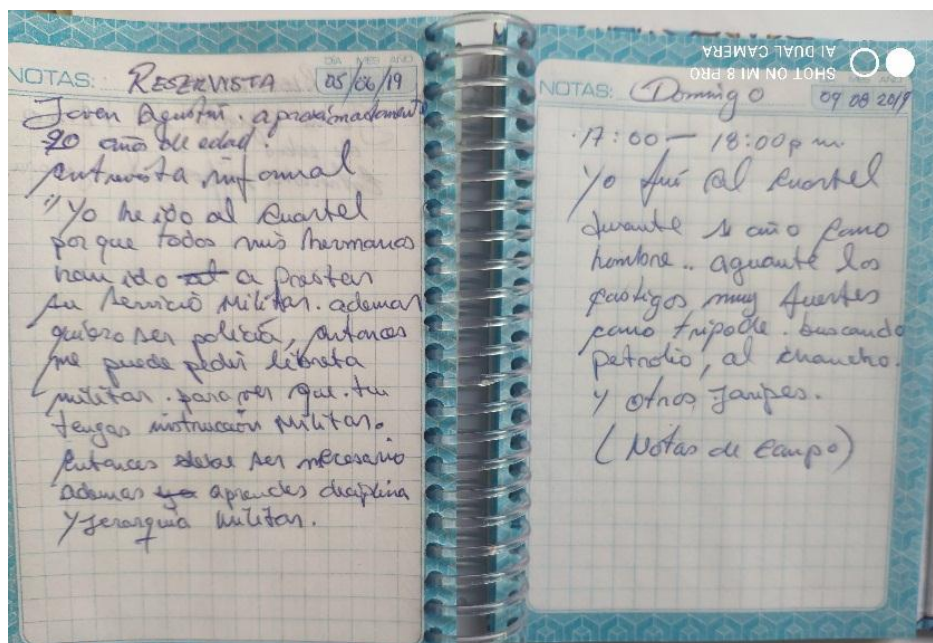 NOTAS: RESERVISTA DIA MES AÑO 05/06/19
Joven Agustin. aproximadamente
20 año de edad.
entrevista informal
"Yo he ido al cuartel
porque todos mis hermanos
han ido a Prestar
su servicio Militar. ademas
quiero ser policía, entonces
me puede pedir libreta
militar. para ver que. tu
tengas instrucción Militar.
Entonces debe ser necesario
ademas aprendes diciplina
Y jerarquia Militar.
NOTAS: Domingo 09 08 2019
17:00 — 18:00 p m.
Yo fui al cuartel
durante 1 año como
hombre.. aguante los
castigos muy fuertes
como tripode. buscando
petrolio, al chancho.
Y otros,
(Notas de campo)
SHOT ON MI 8 PRO
AI DUAL CAMERA